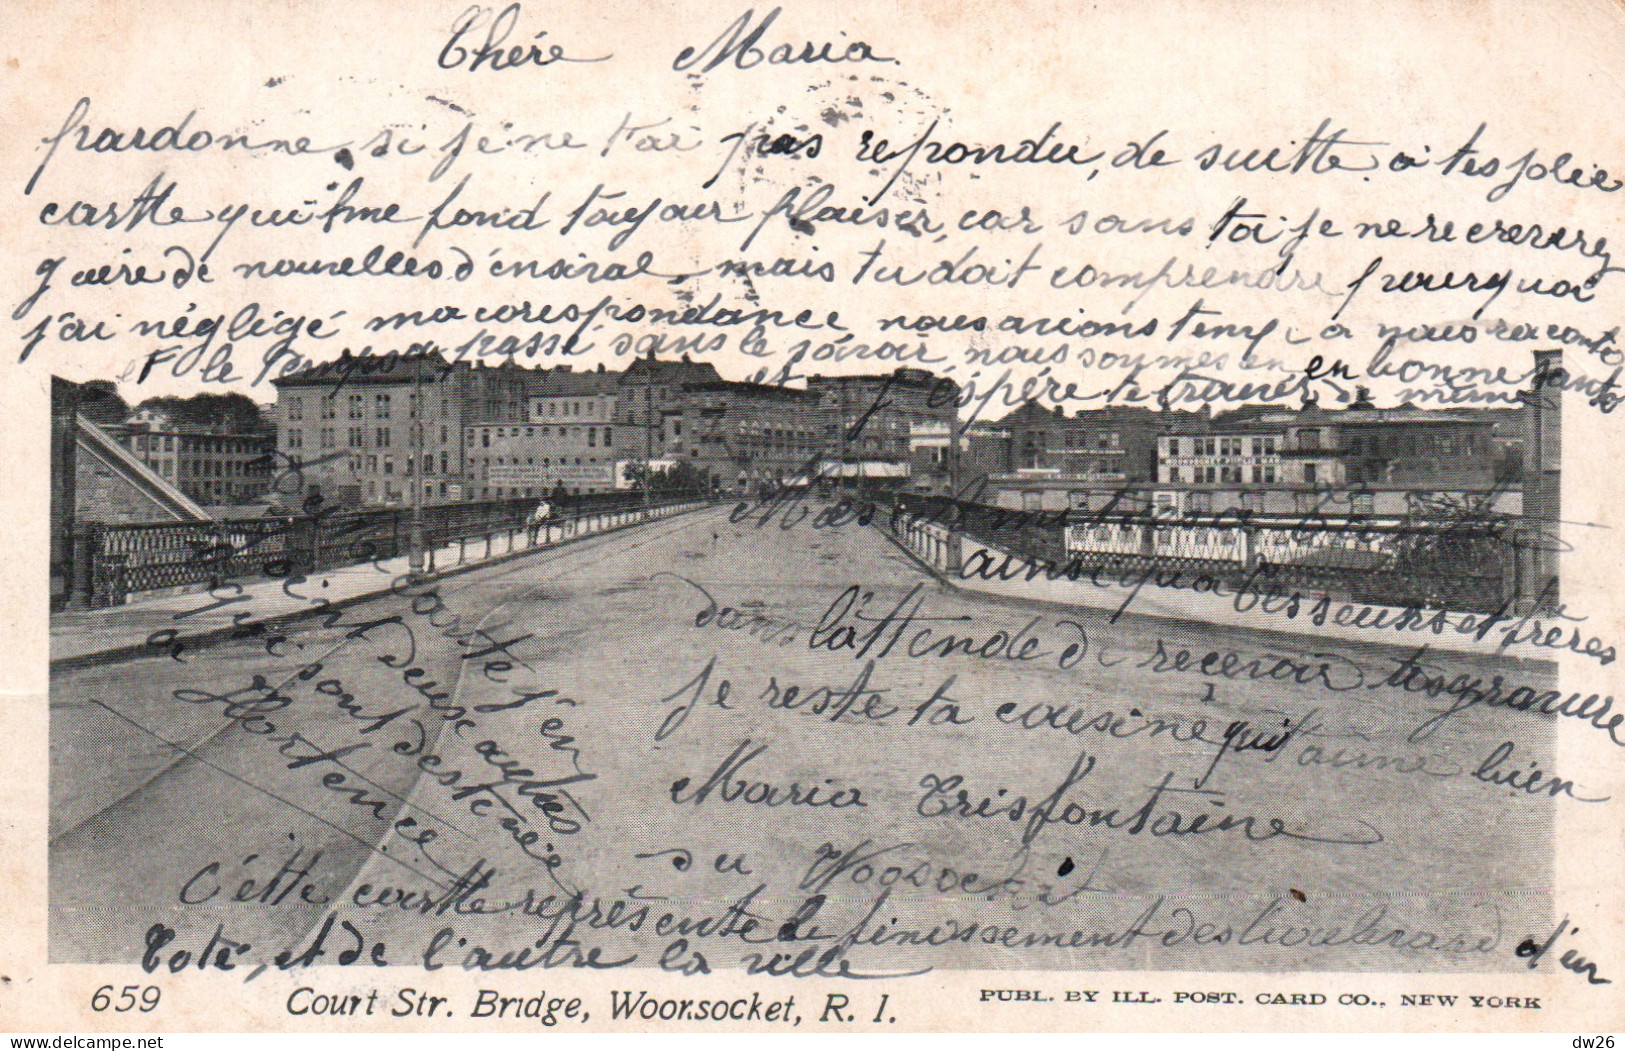 Chére Maria
pardonne si je ne t'ai pas repondu, de suitte a tes jolie
cartte qui me fond toujour plaiser, car sans toi je ne recevrerez
guère de nouvelles d'ensival, mais tu doit comprendre pourquoi
j'ai négligé ma correspondance nous avions temp a nous raconte
et le temps a passé sans le savoir nous soumes en bonne sante
et j'éspére te trouver de même
ainsi qua tes seurs et frères
dans l'attende de recevoir tes gravure
je reste ta cousine qui t'aime bien
Maria Trisfontaine
du Woosocket
carte j'en
joint deux autres
qui sont destinée
a Hortence
Cette cartte représente le finissement des boulevard d'un
Coté, et de l'autre la ville
659 Court Str. Bridge, Woonsocket, R. I. PUBL. BY ILL. POST. CARD CO., NEW YORK
dw26